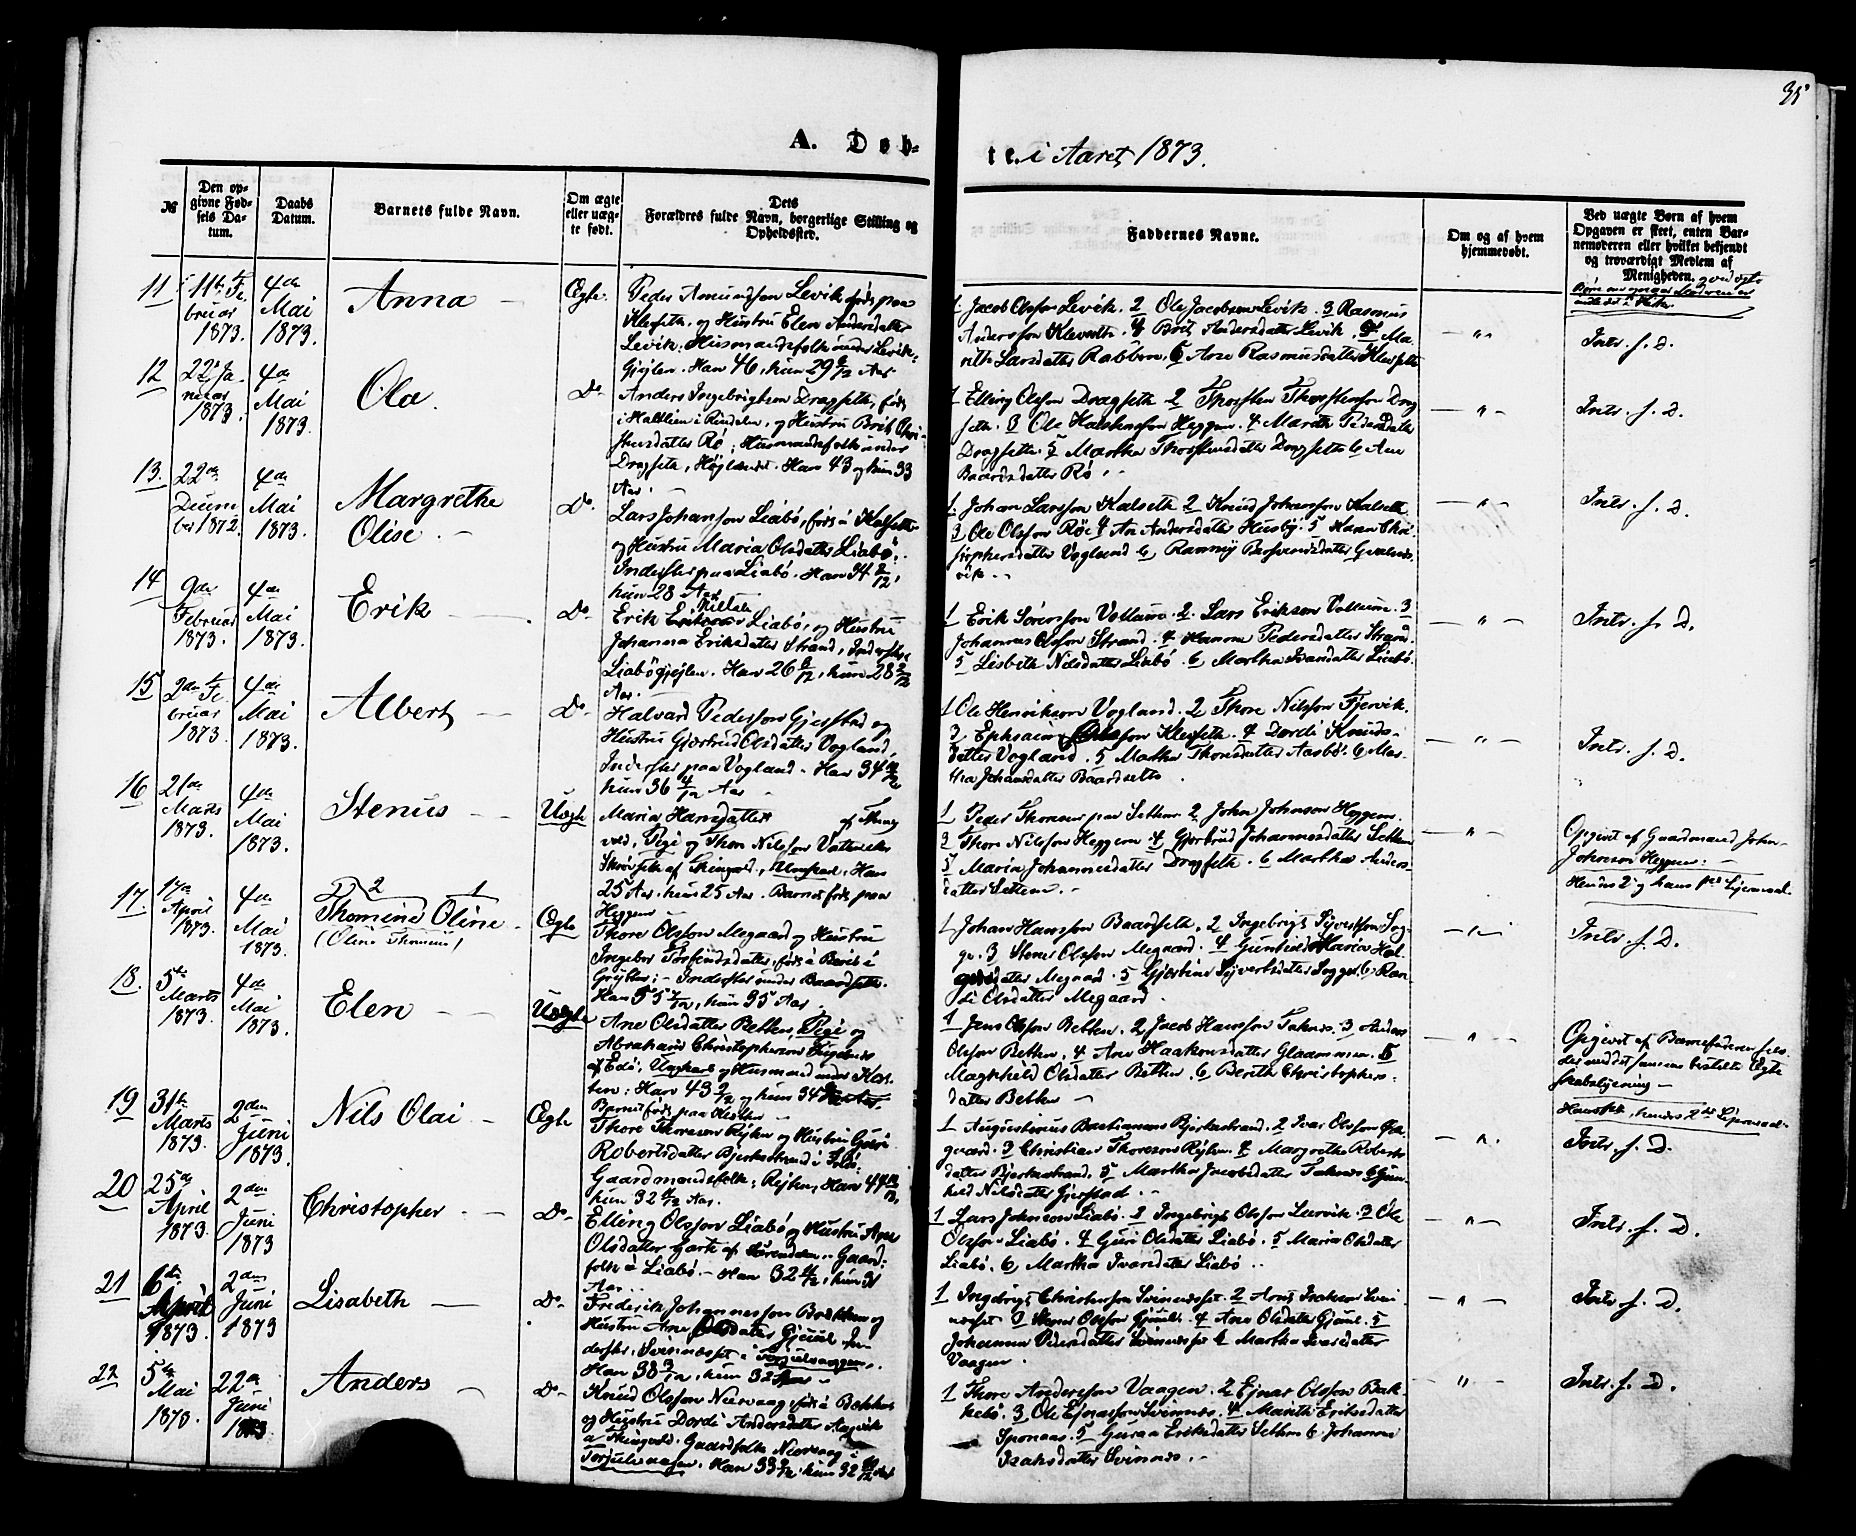 35
A. Døb-
te i Aaret 1873.
№
Den op-
givne Fød-
sels Da-
tum.
Daabs
Datum.
Barnets fulde Navn.
Om ægte
eller uæg-
te født.
Dets
Forældres fulde Navn, borgerlige Stilling og
Opholdssted.
Faddernes Navne.
Om og af hvem
hjemmedøbt.
Ved uægte Børn af hvem
Opgaven er skeet, enten Bar-
nemoderen eller hvilket bekjendt
og troværdigt Medlem af
Menigheden.
11
11te Fe
bruar
1873.
4de
Mai
1873.
Anna
Ægte
Peder Amundsson Levik født paa
Klevseth, og Hustru Elen Andersdatter
Levik. Husmandsfolk under Levik-
Gjøjlen. Han 46, hun 29 6/12 Aar
1. Jacob Olsson Levik. 2 Ole Jacobsen Levik. 3 Rasmus
Andersson Klevseth. 4 Brit Andersdatter Levik. 5 Ma-
rith Larsdatter Rabben. 6 Ane Rasmusdatter Klevseth
— " —
Intr. f. D.
12
22de Ja-
nuar
1873.
4de
Mai
1873.
Ola.
Do
Anders Ingebrigtsen Dragseth, født
i Halllien i Rindalen, og Hustru Brit Chri-
stensdatter Rø; Husmandsfolk under
Dragseth, Højlandet. Han 43 og hun 33
Aar.
1 Elling Olsson Dragseth 2 Thorsten Thorstensson Drag
seth. 3 Ole Halstensson Heggem. 4 Marith Pedersdatter
Dragseth. 5 Martha Thorstensdatter Dragseth 6 Ane
Baardsdatter Rø
— " —
Intr. f. D.
13.
22de
Decem
ber 1872.
4de
Mai
1873.
Margrethe
Olise.
Do.
Lars Johansson Liabø, født i Kalseth
og Hustru Maria Olsdatter Liabø.
Inderster paa Liabø. Han 34 2/12,
hun 28 Aar
1. Johan Larsson Kalseth 2 Knud Johansson Kalseth
3 Ole Olsson Rø 4 Ane Andersdatter Husby. 5 Karen Chri
stophersdatter Vogland 6 Ranny
vik
— " —
Intr. f. D.
14
9de
Februar
1873.
4de
Mai
1873.
Erik
Do
Erik Liabø, og Hustru
Johanna Eriksdatter Strand, Inderster
Liabøgjøjlen. Han 26 8/12, hun 28 2/12
Aar.
1 Erik Sørensson Vollum. 2. Lars Eriksen Vollum. 3
Johannes Olsson Strand. 4 Hanna Pedersdatter Strand.
5 Lisbeth Nilsdatter Liabø. 6 Martha Ivarsdatter Liabø.
— " —
Intr. f. D.
15
2den Fe
bruar
1873.
4de
Mai
1873.
Albert
Do
Halvard Pedersson Gjerstad og
Hustru Gjertrud Olsdatter Vogland,
Inderster paa Vogland. Han 34
hun 36 4/12 Aar
1 Ole Henriksson Vogland. 2 Thore Nilsson Fjervik.
3 Ephraim Olsson Klevseth. 4 Dordi Knuds-
datter Vogland. 5 Martha Thoresdatter Aasbø. 6 Mar-
tha Johansdatter Baardseth
— " —
Intr. f. D.
16
21de
Marts
1873.
4de
Mai
1873.
Stenus
Uægte
Maria Hansdatter af
Pige og Thore Nilsson
af Thingvold, Ungkarl. Han
25 Aar, hun 25 Aar. Barnet født paa
Heggem
1 Peder Thoresen paa Settem. 2 John Johnson Heggem.
3 Thore Nilsson Heggem 4 Gjertrud Johannesdatter Settem
5 Maria Johannesdatter Dragseth. 6 Martha Anders-
datter Settem
— " —
Opgivet af Gaardmand John
Johnson Heggem.
Hendes 2 og hans første Leiermaal
17.
17de
April
1873.
4de
Mai
1873.
2 1
Thomine Oline
(Oline Thomine)
Ægte
Thore Olsson Megaard og Hustru
Ingebor Torfindsdatter, født i Børset i
Grytten; Inderster under Baardseth.
Han 35 7/12, hun 35 Aar
1 Johan Hansson Baardseth. 2 Ingebrigt Syvertsson Sog-
ge. 3 Stener Olsson Megaard. 4 Gunhild Maria Hal-
datter Megaard. 5 Gjertine Syvertsdatter Sogge. 6 Ran-
di Olsdatter Megaard.
— " —
Intr. f. D.
18.
5te
Marts
1873.
4de
Mai
1873.
Elen
Uægte
Ane Olsdatter Betten, Pige og
Abraham Christophersson
af Edø, Ungkarl og Husmand under
Han 43 2/12 og hun 34
Barnet født paa
1 Jens Olsson Betten. 2 Jacob Hansson Taknes. 3 Anders
Olsson Betten. 4 Ane Haakonsdatter Glaammen. 5
Magnhild Olsdatter Betten. 6 Berith Christophers-
datter Betten
— " —
Opgivet af Barnefaderen
der ved det sammen bestilte Ægte
skabslysning
hendes 2det Leiermaal
19
31te
Marts
1873.
2den
Juni
1873.
Nils Olai
Ægte
Thore Thoresen Ryken og Hustru
Robertsdatter Bjerkestrand i
Gaardmandsfolk; Rykem, Han 44
hun 32 4/12 Aar.
1 Augustinus Bastiansen Bjerkestrand. 2 Ivar Olsson
3 Christian Thoresen Rykem. 4 Margrethe Roberts
datter Bjerkestrand. 5 Martha Jacobsdatter Taknes 6 Gun-
hild Nilsdatter Gjerstad
— " .
Intr. f. D.
20
25de
April
1873.
2den
Juni
1873
Christopher
Do
Elling Olsson Liabø og Hustru Ane
Olsdatter
folk i Liabø. Han 32 4/12, hun 31
Aar
1 Lars Johnson Liabø. 2 Ingebrigt Olsson Leervik. 3 Ole
Olsson Liabø. 4 Guri Olsdatter Liabø. 5 Maria Olsdatter
Liabø. 6 Martha Ivarsdatter Liabø
— " —
Intr. f. D.
21
6te
April
1873.
2den
Juni
1873
Lisabeth
Do
Frederik Johannesson og
Hustru Ane Olsdatter Gjøul. In-
derster, Svinnesset i Torjulvaagen.
Han 38 3/12, hun 32
1 Ingebrigt Christensson Svinnesset. 2 Arnt Isaksen Svi-
nesset 3 Stener Olsson Gjøul. 4 Ane Olsdatter Gjøul. 5
Johanna Pedersdatter Svinnesset 6 Martha Ivarsdatter
Vaagen
— " —
Intr. f. D.
22
5te
Mai
1873.
22de
Juni
1873
Anders
Do
Knud Olsson Nervaag, født i
og Hustru Dordi Andersdatter Aasvik
i Thingvold. Gaardfolk Nervaag i
Torjulvaagen. Han 33 9/12, hun 32
1 Thore Andersson Vaagen. 2 Ejnar Olsson Bak-
kebø. 3 Ole Ejnarsson Svinnes. 4 Marith Eriksdatter
Sponaas. 5 Guraa Eriksdatter Settem 6 Johanna
Isaksdatter Svinnes.
— " —
Intr. f. D.